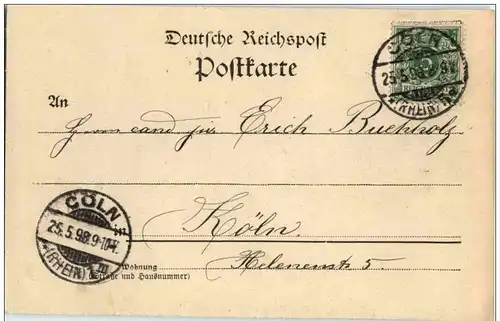 Deutsche Reichspost
Postkarte
An
Herrn cand jur Erich Buchholz
in
Köln.
Helenenstr. 5.
Wohnung
(Straße und Hausnummer)
CÖLN
25.5.98.
(RHEIN)
CÖLN
25.5.98.9-10V.
*(RHEIN)1m